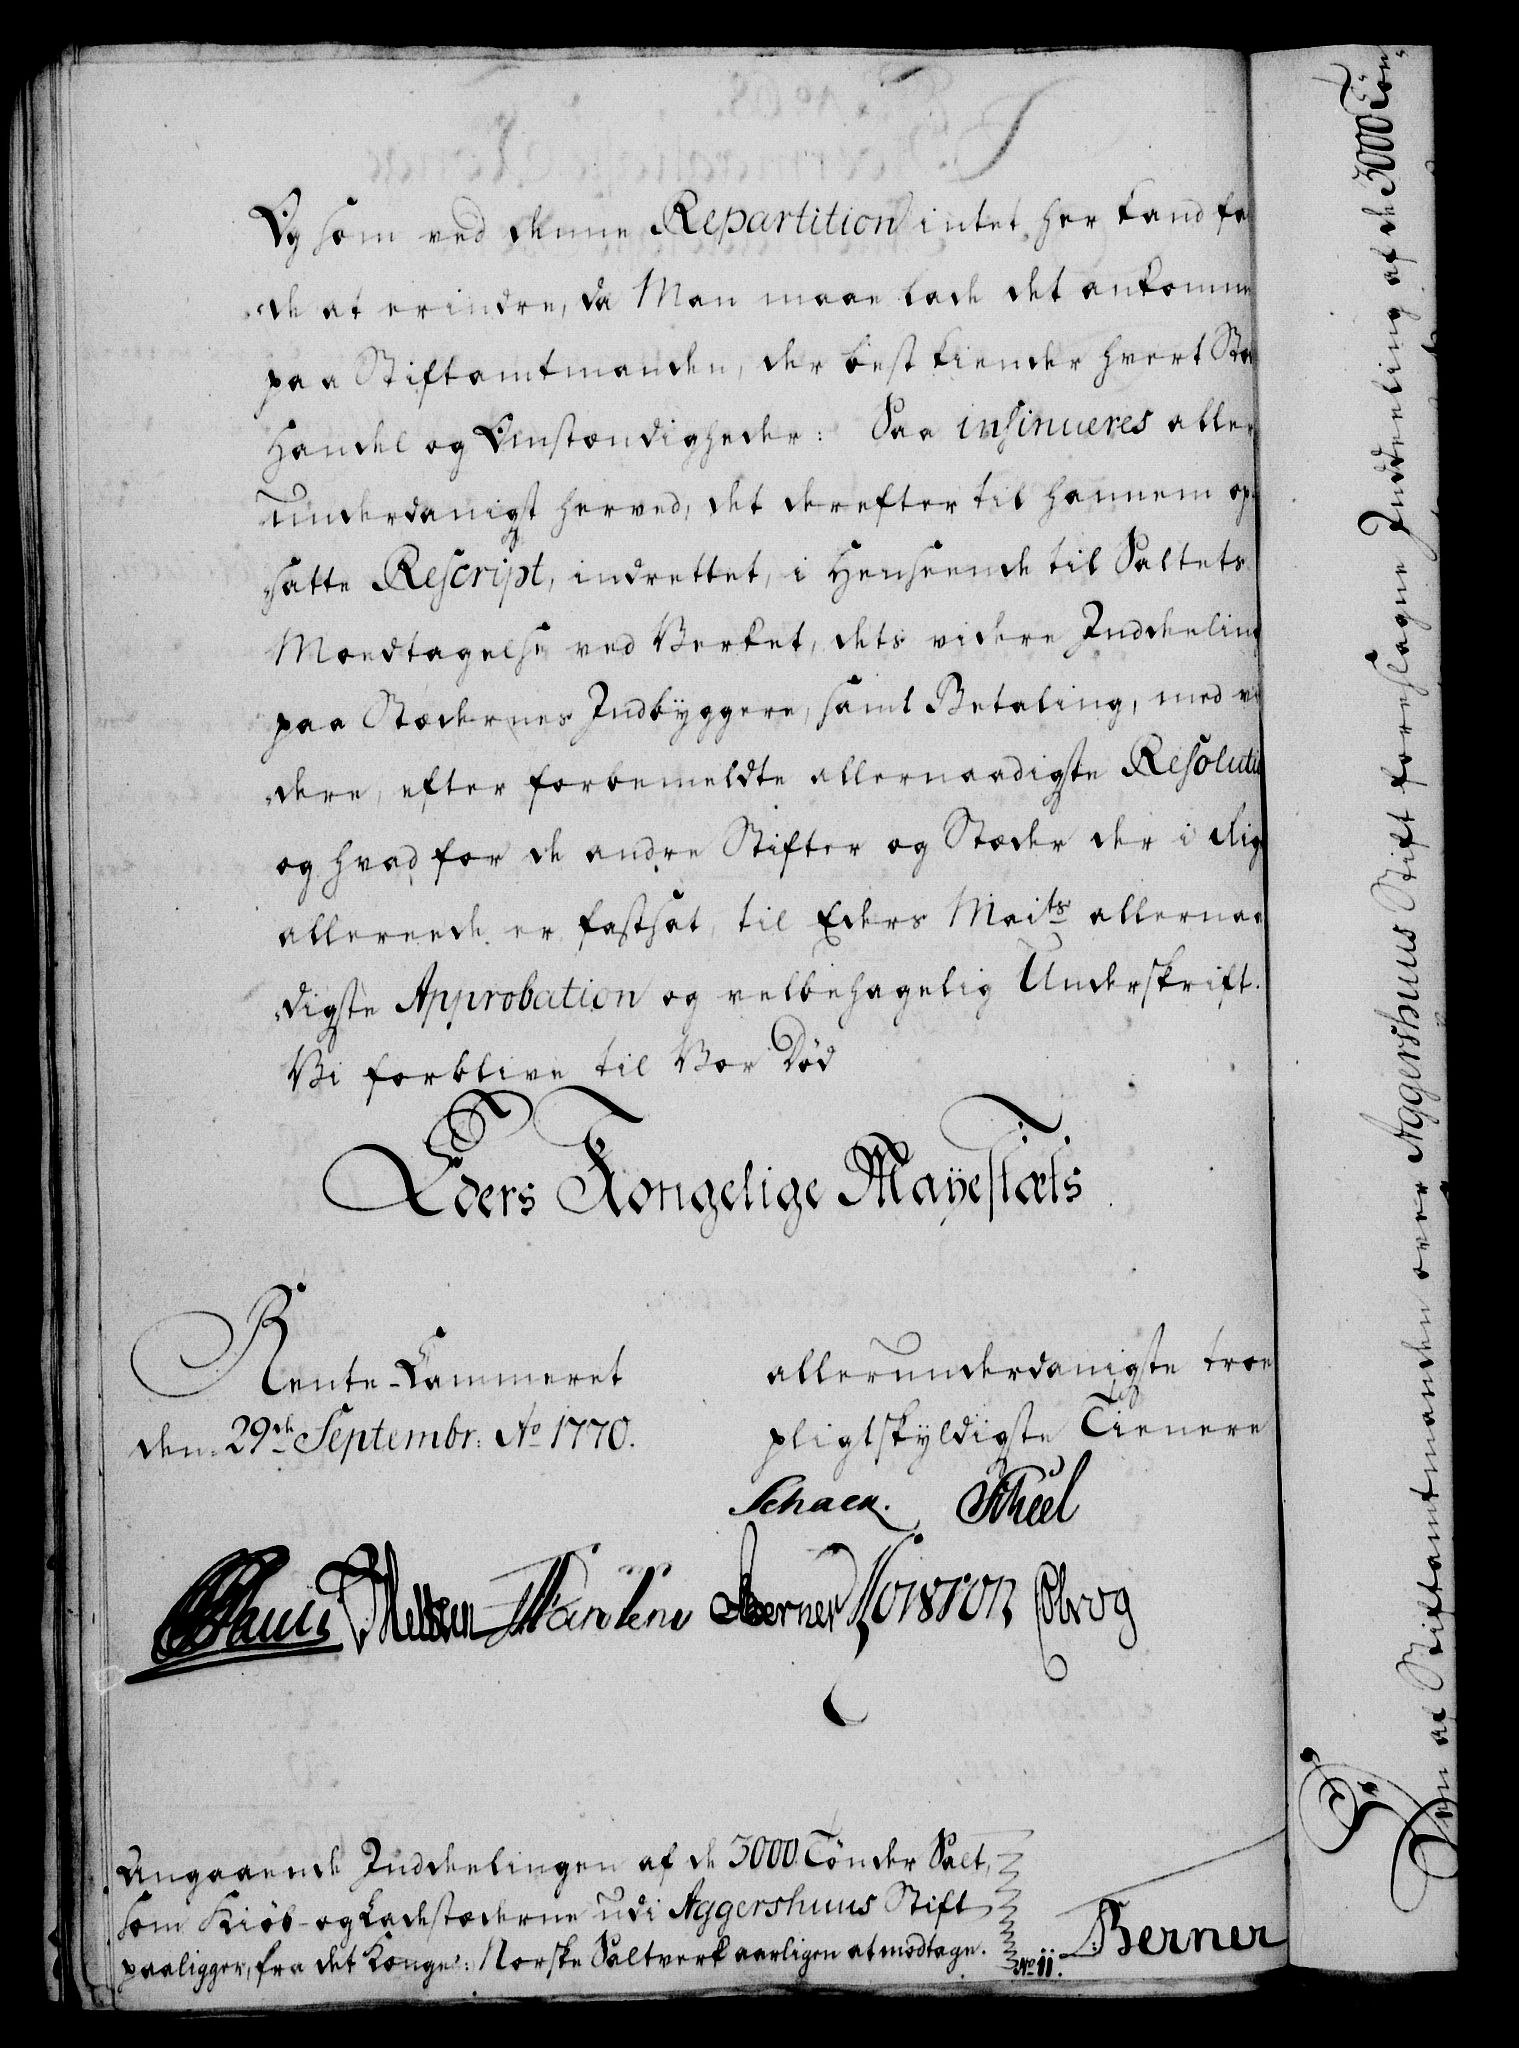 Og som ved denne Repartition intet her kand fa-
de at erindre, da Man maae lade det ankomme
paa Stiftamtmanden, der best kiender hvert Stæ
Handel og Omstændigheder: Saa insinueres aller
underdanigst herved, det derefter til hannem op-
satte Rescript, indrettet, i Henseende til Saltets
Modtagelse ved Verket, dets videre Inddeeling
paa Stædernes Indbyggere, samt Betaling, med vi
dere, efter forbemeldte allernaadigste Resoluti
og hvad for de andre Stifter og Stæder der i Rig
allereede er fastsat, til Eders Maits allernaa
digste Approbation og velbehagelig Underskrift.
Vi forblive til Vor Død
Eders Kongelige Mayestæts
Rente-Cammeret
den 29de Septembr: Ao 1770.
allerunderdanigste troe
pligtskyldigste Tienere
Schack. Scheel
Berner Holvog
Angaaende Inddeelingen af de 3000 Tønder Salt,
som Kiøb- og Ladestæderne udi Aggershuus Stift
paaligger, fra det Konge: Norske Saltverk aarligen at modtage.
No 11.
Berner
Den af Stiftamtmanden over Aggershuus Stift foreslagne Inddeeling af de 3000 Tøn-